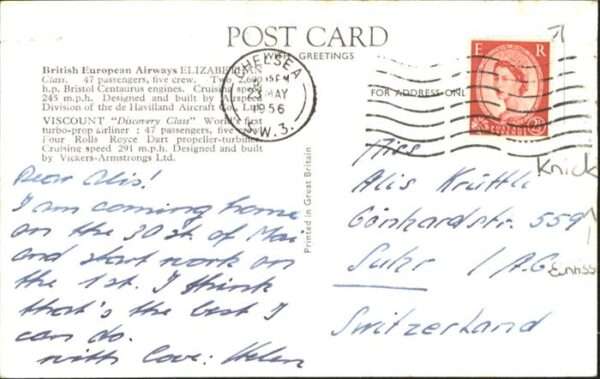 POST CARD
WITH GREETINGS
British European Airways ELIZABETHAN
Class. 47 passengers, five crew. Two 2,600
h.p. Bristol Centaurus engines. Cruising speed
245 m.p.h. Designed and built by Airspeed
Division of the de Havilland Aircraft Co., Ltd.
VISCOUNT "Discovery Class" World's first
turbo-prop airliner : 47 passengers, five crew.
Four Rolls Royce Dart propeller-turbines.
Cruising speed 291 m.p.h. Designed and built
by Vickers-Armstrongs Ltd.
CHELSEA
MAY
1956
S.W.3.
E R
FOR ADDRESS ONLY
Printed in Great Britain
Dear Alis!
I am coming home
on the 30st. of Mai
and start work on
the 1st. I think
that's the best I
can do.
with love: Helen
Miss
Alis Krüttli
Gönhardstr. 559
Suhr / AG
Switzerland
Knick